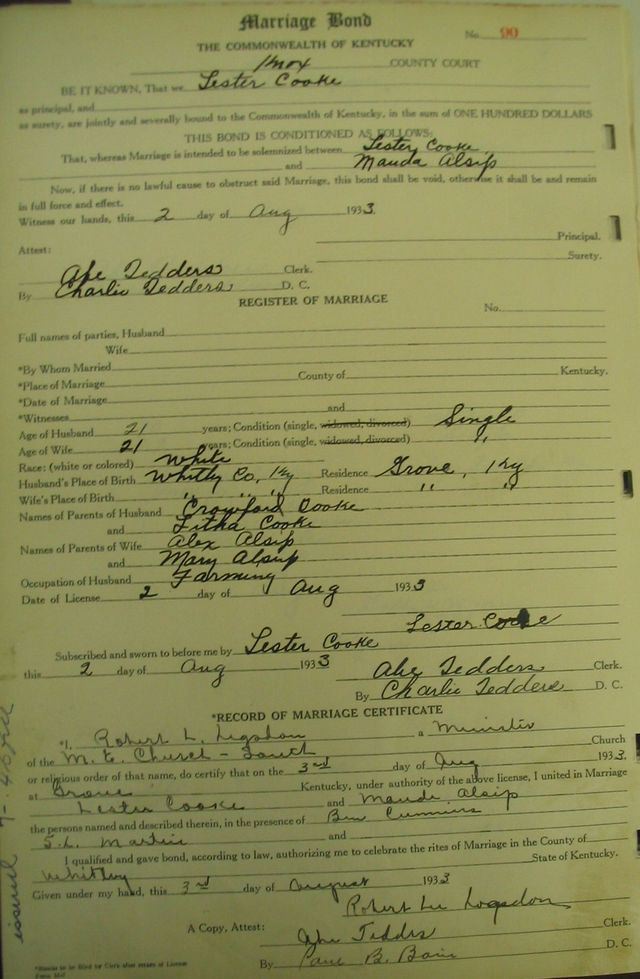 Marriage Bond
No. 90
THE COMMONWEALTH OF KENTUCKY
Knox COUNTY COURT
BE IT KNOWN, That we Lester Cooke
as principal, and
as surety, are jointly and severally bound to the Commonwealth of Kentucky, in the sum of ONE HUNDRED DOLLARS
THIS BOND IS CONDITIONED AS FOLLOWS:
That, whereas Marriage is intended to be solemnized between Lester Cooke
and Mauda Alsip
Now, if there is no lawful cause to obstruct said Marriage, this bond shall be void, otherwise it shall be and remain
in full force and effect.
Witness our hands, this 2 day of Aug 1933.
Principal.
Attest: Surety.
Abe Tedders Clerk.
By Charlie Tedders D. C.
REGISTER OF MARRIAGE
No.
Full names of parties, Husband
Wife
*By Whom Married
*Place of Marriage County of Kentucky.
*Date of Marriage
*Witnesses and
Age of Husband 21 years; Condition (single, widowed, divorced) Single
Age of Wife 21 years; Condition (single, widowed, divorced) "
Race: (white or colored) White
Husband's Place of Birth Whitly Co, Ky Residence Grove, Ky
Wife's Place of Birth " " " Residence " "
Names of Parents of Husband Crawford Cooke
and Litha Cooke
Names of Parents of Wife Alex Alsip
and Mary Alsip
Occupation of Husband Farming
Date of License 2 day of Aug 1933
Lester Cooke
Subscribed and sworn to before me by Lester Cooke
this 2 day of Aug 1933 Abe Tedders Clerk.
By Charlie Tedders D. C.
*RECORD OF MARRIAGE CERTIFICATE
*I, Robert L. Logsdon a Minister
of the M. E. Church - South Church
or religious order of that name, do certify that on the 3rd day of Aug 1933.
at Grove Kentucky, under authority of the above license, I united in Marriage
Lester Cooke and Maude Alsip
the persons named and described therein, in the presence of Ben Cummins
S. L. Martin and
I qualified and gave bond, according to law, authorizing me to celebrate the rites of Marriage in the County of
Whitley State of Kentucky.
Given under my hand, this 3rd day of August 1933
Robert Lee Logsdon
A Copy, Attest: Abe Tedders Clerk.
By D. C.
*Blanks to be filled by Clerk after return of License
issued